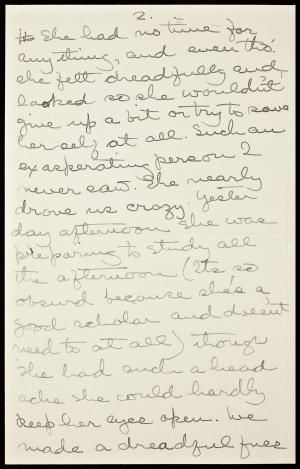 2.
She had no time for
anything, and even tho'
she felt dreadfully and
looked so she wouldn't
give up a bit or try to save
herself at all. Such an
exasperating person I
never saw. She nearly
drove us crazy. Yester
day afternoon she was
preparing to study all
the afternoon (Its so
absurd because she's a
good scholar and doesn't
need to at all) though
she had such a head
ache she could hardly
keep her eyes open. We
made a dreadful fuss